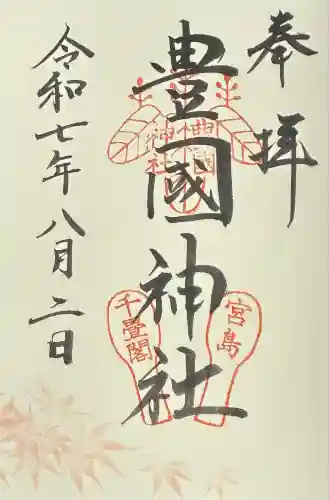 奉拝
豊國神社
豊國神社
宮島
千畳閣
令和七年八月二日